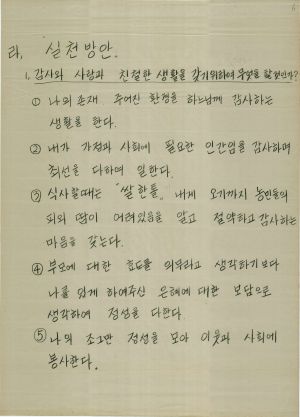 라, 실천방안.
1. 감사와 사랑과 친절한 생활을 갖기위하여 무엇을 할것인가?
① 나의 존재 주어진 환경을 하느님께 감사하는
생활을 한다.
② 내가 가정과 사회에 필요한 인간임을 감사하며
최선을 다하여 일한다.
③ 식사할때는 "쌀 한톨" 내게 오기까지 농민들의
피와 땀이 어려있음을 알고 절약하고 감사하는
마음을 갖는다.
④ 부모에 대한 효도를 의무라고 생각하기보다
나를 있게 하여주신 은혜에 대한 보답으로
생각하여 정성을 다한다.
⑤ 나의 조그만 정성을 모아 이웃과 사회에
봉사한다.